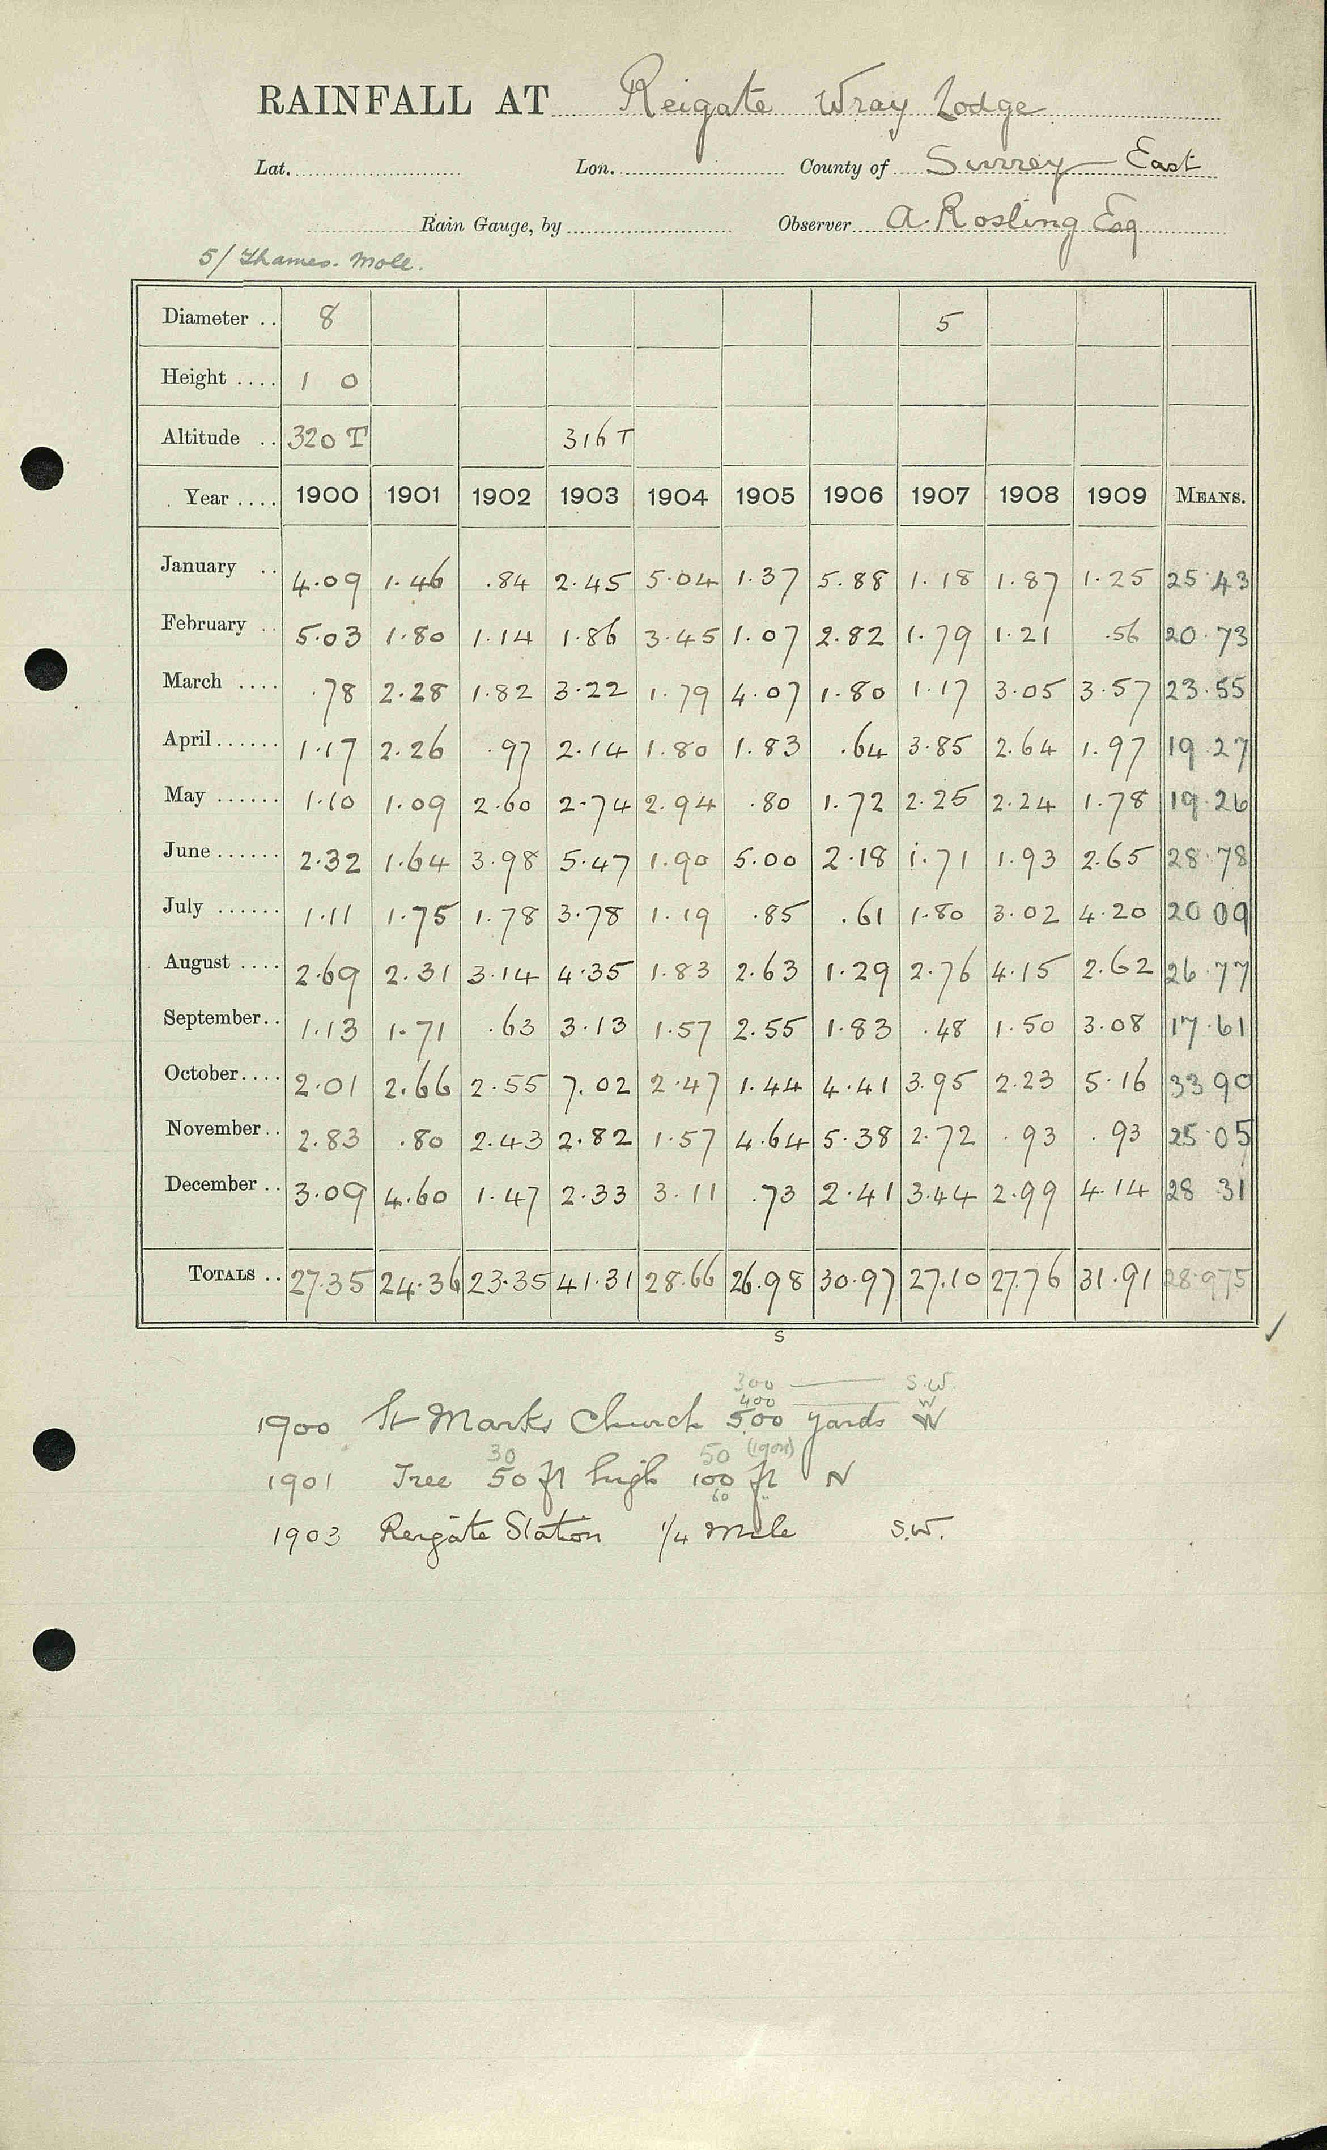 RAINFALL AT Reigate Wray Lodge
Lat. Lon. County of Surrey East
Rain Gauge, by Observer A Rosling Esq
5/ Thames. Mole.
Diameter .. 8 5
Height .... 1 0
Altitude .. 320 T 316 T
Year .... 1900 1901 1902 1903 1904 1905 1906 1907 1908 1909 MEANS.
January .. 4.09 1.46 .84 2.45 5.04 1.37 5.88 1.18 1.87 1.25 25.43
February .. 5.03 1.80 1.14 1.86 3.45 1.07 2.82 1.79 1.21 .56 20.73
March .... .78 2.28 1.82 3.22 1.79 4.07 1.80 1.17 3.05 3.57 23.55
April ...... 1.17 2.26 .97 2.14 1.80 1.83 .64 3.85 2.64 1.97 19.27
May ...... 1.10 1.09 2.60 2.74 2.94 .80 1.72 2.25 2.24 1.78 19.26
June ...... 2.32 1.64 3.98 5.47 1.90 5.00 2.18 1.71 1.93 2.65 28.78
July ...... 1.11 1.75 1.78 3.78 1.19 .85 .61 1.80 3.02 4.20 20 09
August .... 2.69 2.31 3.14 4.35 1.83 2.63 1.29 2.76 4.15 2.62 26.77
September .. 1.13 1.71 .63 3.13 1.57 2.55 1.83 .48 1.50 3.08 17.61
October .... 2.01 2.66 2.55 7.02 2.47 1.44 4.41 3.95 2.23 5.16 33 90
November .. 2.83 .80 2.43 2.82 1.57 4.64 5.38 2.72 .93 .93 25.05
December .. 3.09 4.60 1.47 2.33 3.11 .73 2.41 3.44 2.99 4.14 28 31
TOTALS .. 27.35 24.36 23.35 41.31 28.66 26.98 30.97 27.10 27.76 31.91 28.975
S
300 S.W.
400 W
1900 St Marks Church 500 yards W
30 50 (1904)
1901 Tree 50 ft high 100 ft N
60 "
1903 Reigate Station 1/4 Mile S.W.